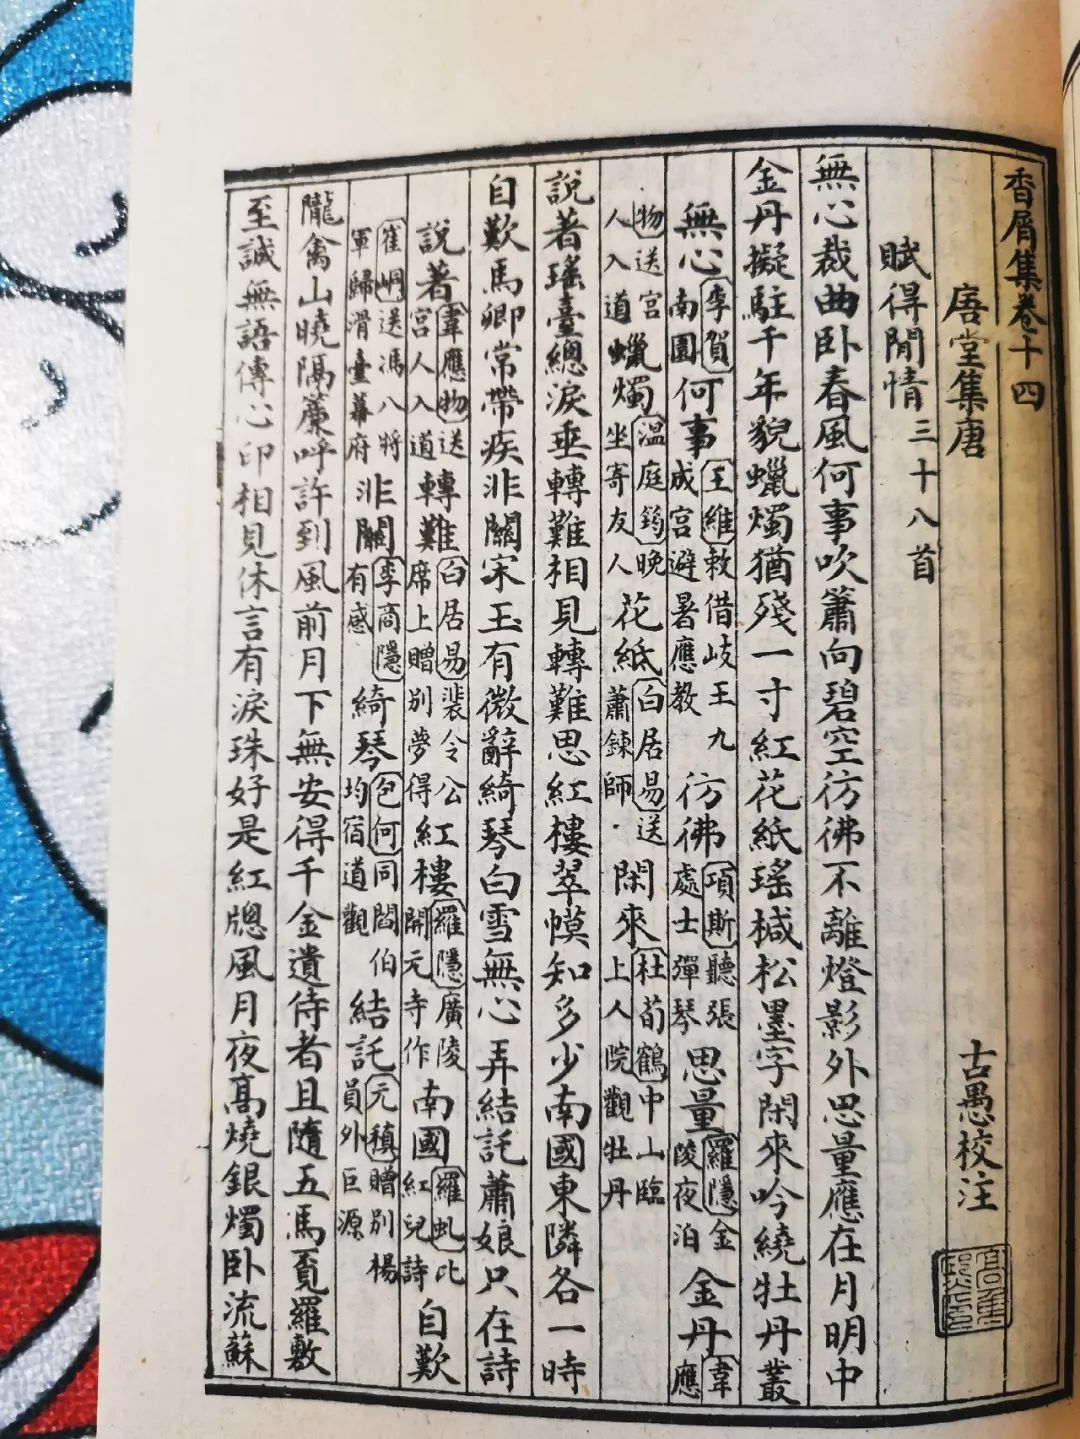 香屑集卷十四
唐堂集唐 古愚校注
賦得閒情三十八首
無心裁曲卧春風何事吹簫向碧空彷彿不離燈影外思量應在月明中
金丹擬駐千年貌蠟燭猶殘一寸紅花紙瑤椷松墨字閑來吟繞牡丹叢
無心李賀南園何事王維敕借岐王九成宮避暑應教彷彿項斯聽張處士彈琴思量羅隱金陵夜泊金丹韋應
物送宮人入道蠟燭溫庭筠晚坐寄友人花紙白居易送蕭鍊師閑來杜荀鶴中山臨上人院觀牡丹
說著瑤臺總淚垂轉難相見轉難思紅樓翠幙知多少南國東隣各一時
自歎馬卿常帶疾非關宋玉有微辭綺琴白雪無心弄結託蕭娘只在詩
說著韋應物送宮人入道轉難白居易裴令公席上贈別夢得紅樓羅隱廣陵開元寺作南國羅虬比紅兒詩自歎
崔峒送馮八將軍歸滑臺幕府非關李商隱有感綺琴包何同閻伯均宿道觀結託元稹贈別楊員外巨源
隴禽山曉隔簾呼許到風前月下無安得千金遺侍者且隨五馬覓羅敷
至誠無語傳心印相見休言有淚珠好是紅牕風月夜高燒銀燭卧流蘇